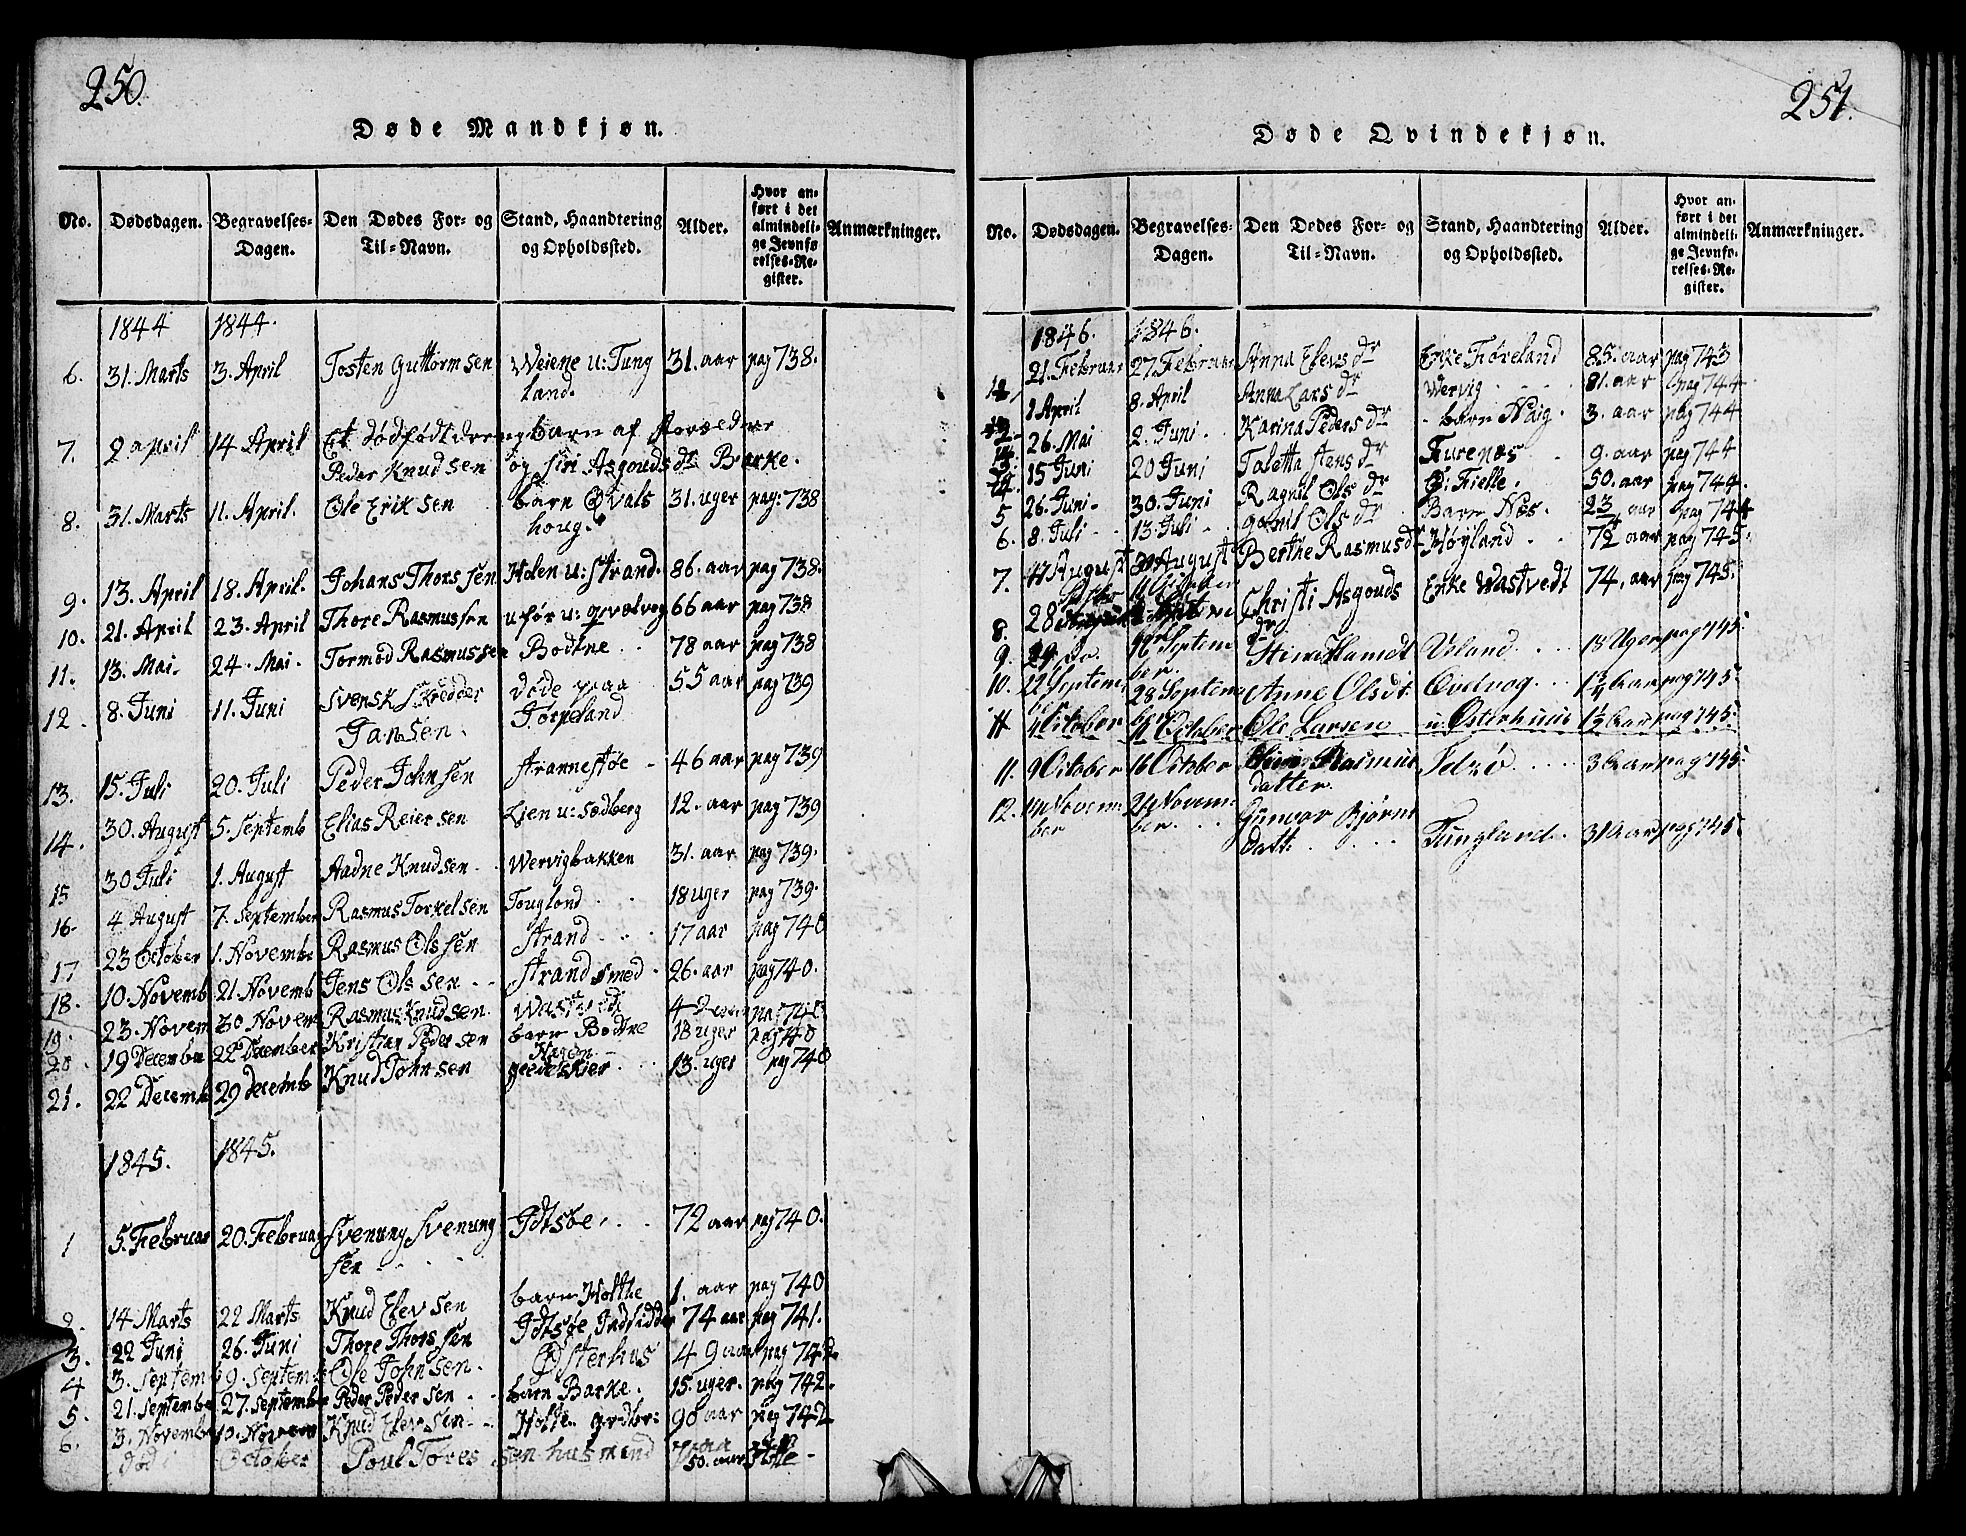 250.
Døde Mandkjøn.
No. Dødsdagen. Begravelses-Dagen. Den Dødes For- og Til-Navn. Stand, Haandtering og Opholdssted. Alder. Hvor anført i det almindelige Jevnførelses-Register. Anmærkninger.
1844 1844.
6. 31. Marts 3. April Tosten Guttormsen Weiene u: Tung 31. aar pag 738.
land.
7. 2 april 14 April Et dødfødt drengebarn af Forældrer
Peder Knudsen og Siri Asgouds dr Barke.
8. 31. Marts 11. April. Ole Eriksen barn Qvals 31. uger pag: 738
houg
9. 13. April 18. April. Johans Thorssen Holen u: Strand. 86. aar pag 738.
10. 21. April 23. April Thore Rasmussen ufør u: qvælvog 66 aar pag 738
11. 13. Mai. 24. Mai. Tormod Rasmussen Bodtne 78 aar pag 738
12. 8. Juni 11. Juni Svensk Skredder døde paa 55 aar pag 739
Jansen. Torpeland
13. 15. Juli 20. Juli Peder Johnsen Strannestøe 46 aar pag 739
14. 30. August 5. Septemb Elias Reiersen Lien u: Sødberg 12. aar pag 739
15 30 Juli 1. August Aadne Knudsen Wervigbakken 31. aar pag 739.
16. 4 August 7. September Rasmus Torkelsen Tougland 18 uger pag 739.
17 23 October 1. Novembe Rasmus Olssen Strand 17 aar pag 740
18. 10. Novemb 21 Novemb Jens Olssen Strand Smed 26. aar pag 740.
19. 23. Novem 30 Novem Rasmus Knudsen. Wastvedt 42
20 19 Decembe 22 December Kristian Pedersen barn Bodtne 18 uger pag 40
21. 22 Decemb 29 decemb Knud Johnsen 13. uger pag 740
1845. 1845.
1 5. Februar 20. Februar Svenung Svenung Idtsøe 72 aar pag 740.
sen
2. 14 Marts 22 Marts Knud Elevsen barn Holtte 1. aar pag 740
3. 22 Juni 26. Juni Thore Thorssen Idtsøe Indsidder 74 aar pag 741.
4 3. Septem 9. Septem Ole Johnsen. Østerhus 49 aar pag 742.
5. 21. Septembe 27. September Peder Pedersen barn Barke. 15. uger. pag 742.
6. 3. Novembe 12. Novem Knud Elevsen Holte Grdbr: 90 aar pag 742
død October Poul Toressen husmand 50. aar
251.
Døde Qvindekjøn.
No. Dødsdagen. Begravelses-Dagen. Den Dødes For- og Til-Navn. Stand, Haandtering og Opholdssted. Alder. Hvor anført i det almindelige Jevnførelses-Register. Anmærkninger.
1846. 1846.
21. Februar 27. Februar Anna Elevs dr Enke Fiøreland 85. aar pag 743
1 April 8. April Anna Lars dr Wervig 81. aar pag 744
26. Mai 2. Juni Karina Peders dr barn Haig 3. aar pag 744
15 Juni 20 Juni Taletta Stens dr Furenæs 9. aar pag 744
5 26. Juni 30. Juni Ragnil Ols dr Fielle. 50. aar pag 744.
6. 8. Juli 13. Juli Gonil Ols dr Barn Næs. 23 aar pag 744
7. August August Berthe Rasmusdr Høyland 72 aar pag 745.
8. 28 Christi Asgouds Enke Wastvedt 74, aar pag 745.
dr
9. 29 16 Septem Uvland 18 Uger pag 745.
ber.
10. 22 Septem 28 Septem Anne Olsdt. Qvelvog 1 3/4 Aar pag 745.
ber ber
11 4 October 11 October Ole Larsen u. Østerhuus 1 1/2 Aar pag 745.
11. 9 October 16 October Rasmus Idsø 3 Aar pag 745.
datter.
12. 14 Novem 21 Novem Gunvor Bjørns
ber ber. Datt. Tungland. 31 Aar pag 745.